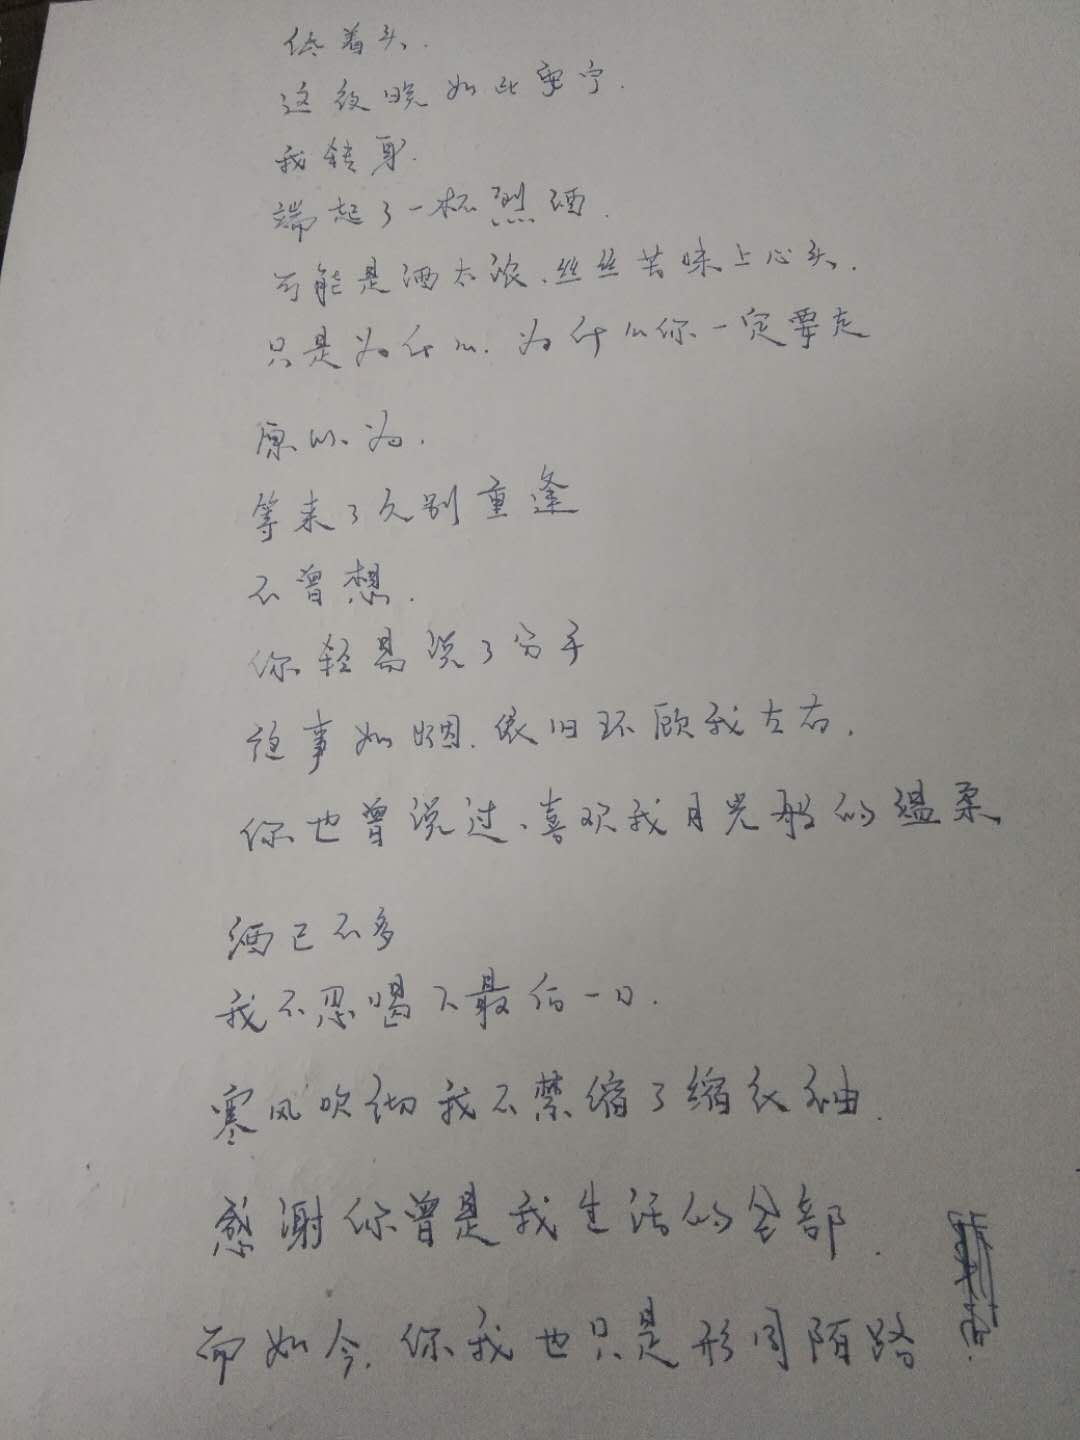 低着头.
这夜晚如此安宁.
我转身.
端起了一杯烈酒.
可能是酒太浓、丝丝苦味上心头.
只是为什么.为什么你一定要走
原以为.
等来了久别重逢
不曾想.
你轻易说了分手
往事如烟.依旧环顾我左右.
你也曾说过、喜欢我月光般的温柔
酒已不多
我不忍喝下最后一口.
寒风吹彻我不禁缩了缩衣袖.
感谢你曾是我生活的全部.
而如今.你我也只是形同陌路